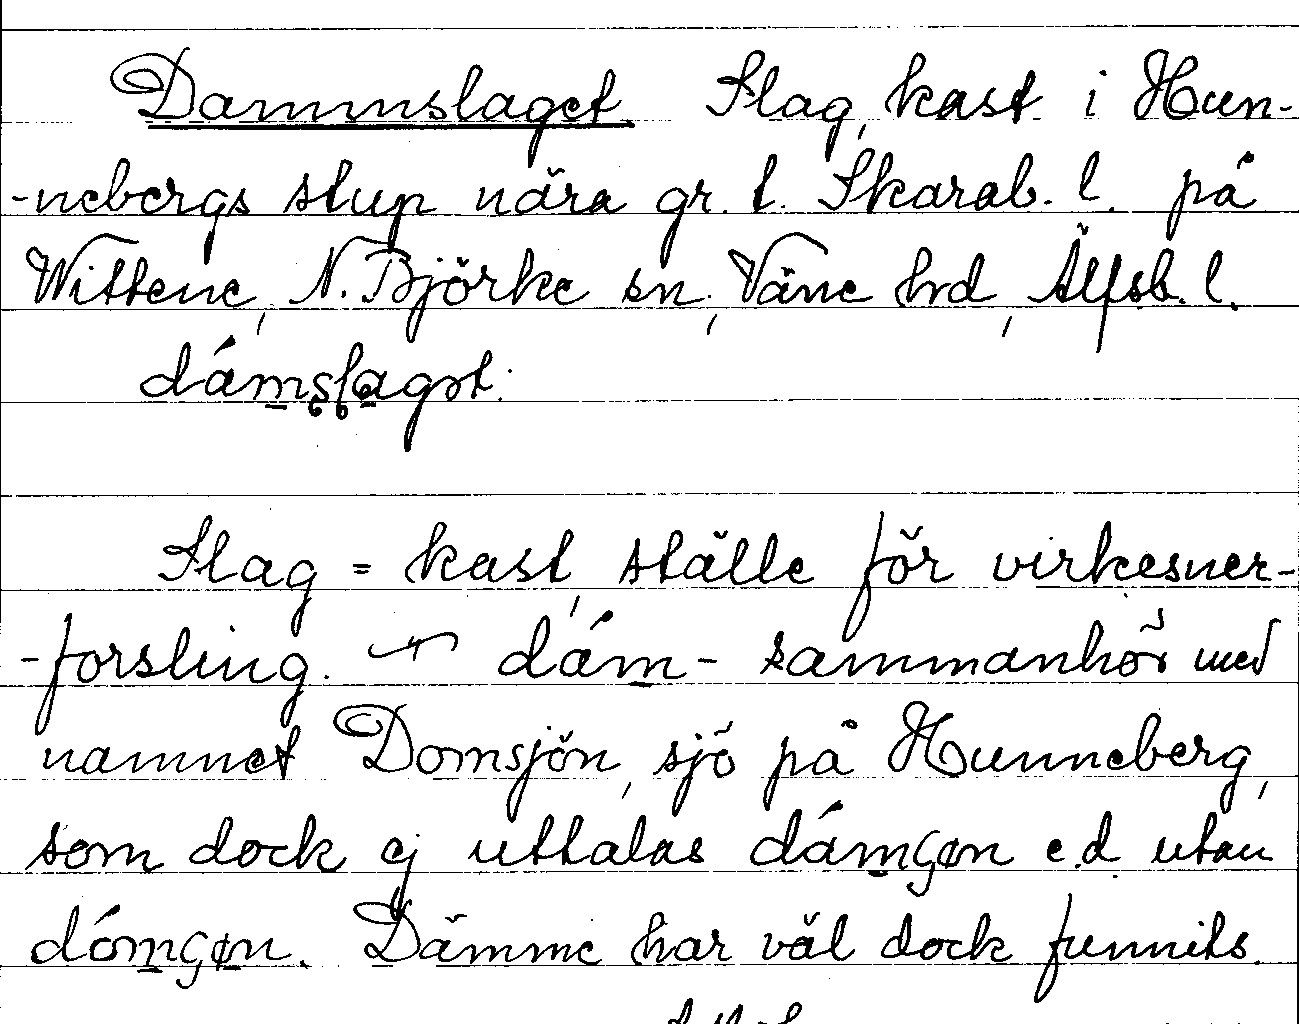 Dammslaget. Slag, kast i Hun-
-nebergs stup nära gr. t. Skarab. l. på
Wittene, N. Björke sn, Väne hrd, Älfsb. l.
dámslagət.
Slag = kast, ställe för virkesner-
-forsling. dám- sammanhör med
namnet Domsjön, sjö på Hunneberg,
som dock ej uttalas dámʂøn e.d utan
dómʂøn. Dämme har väl dock funnits.